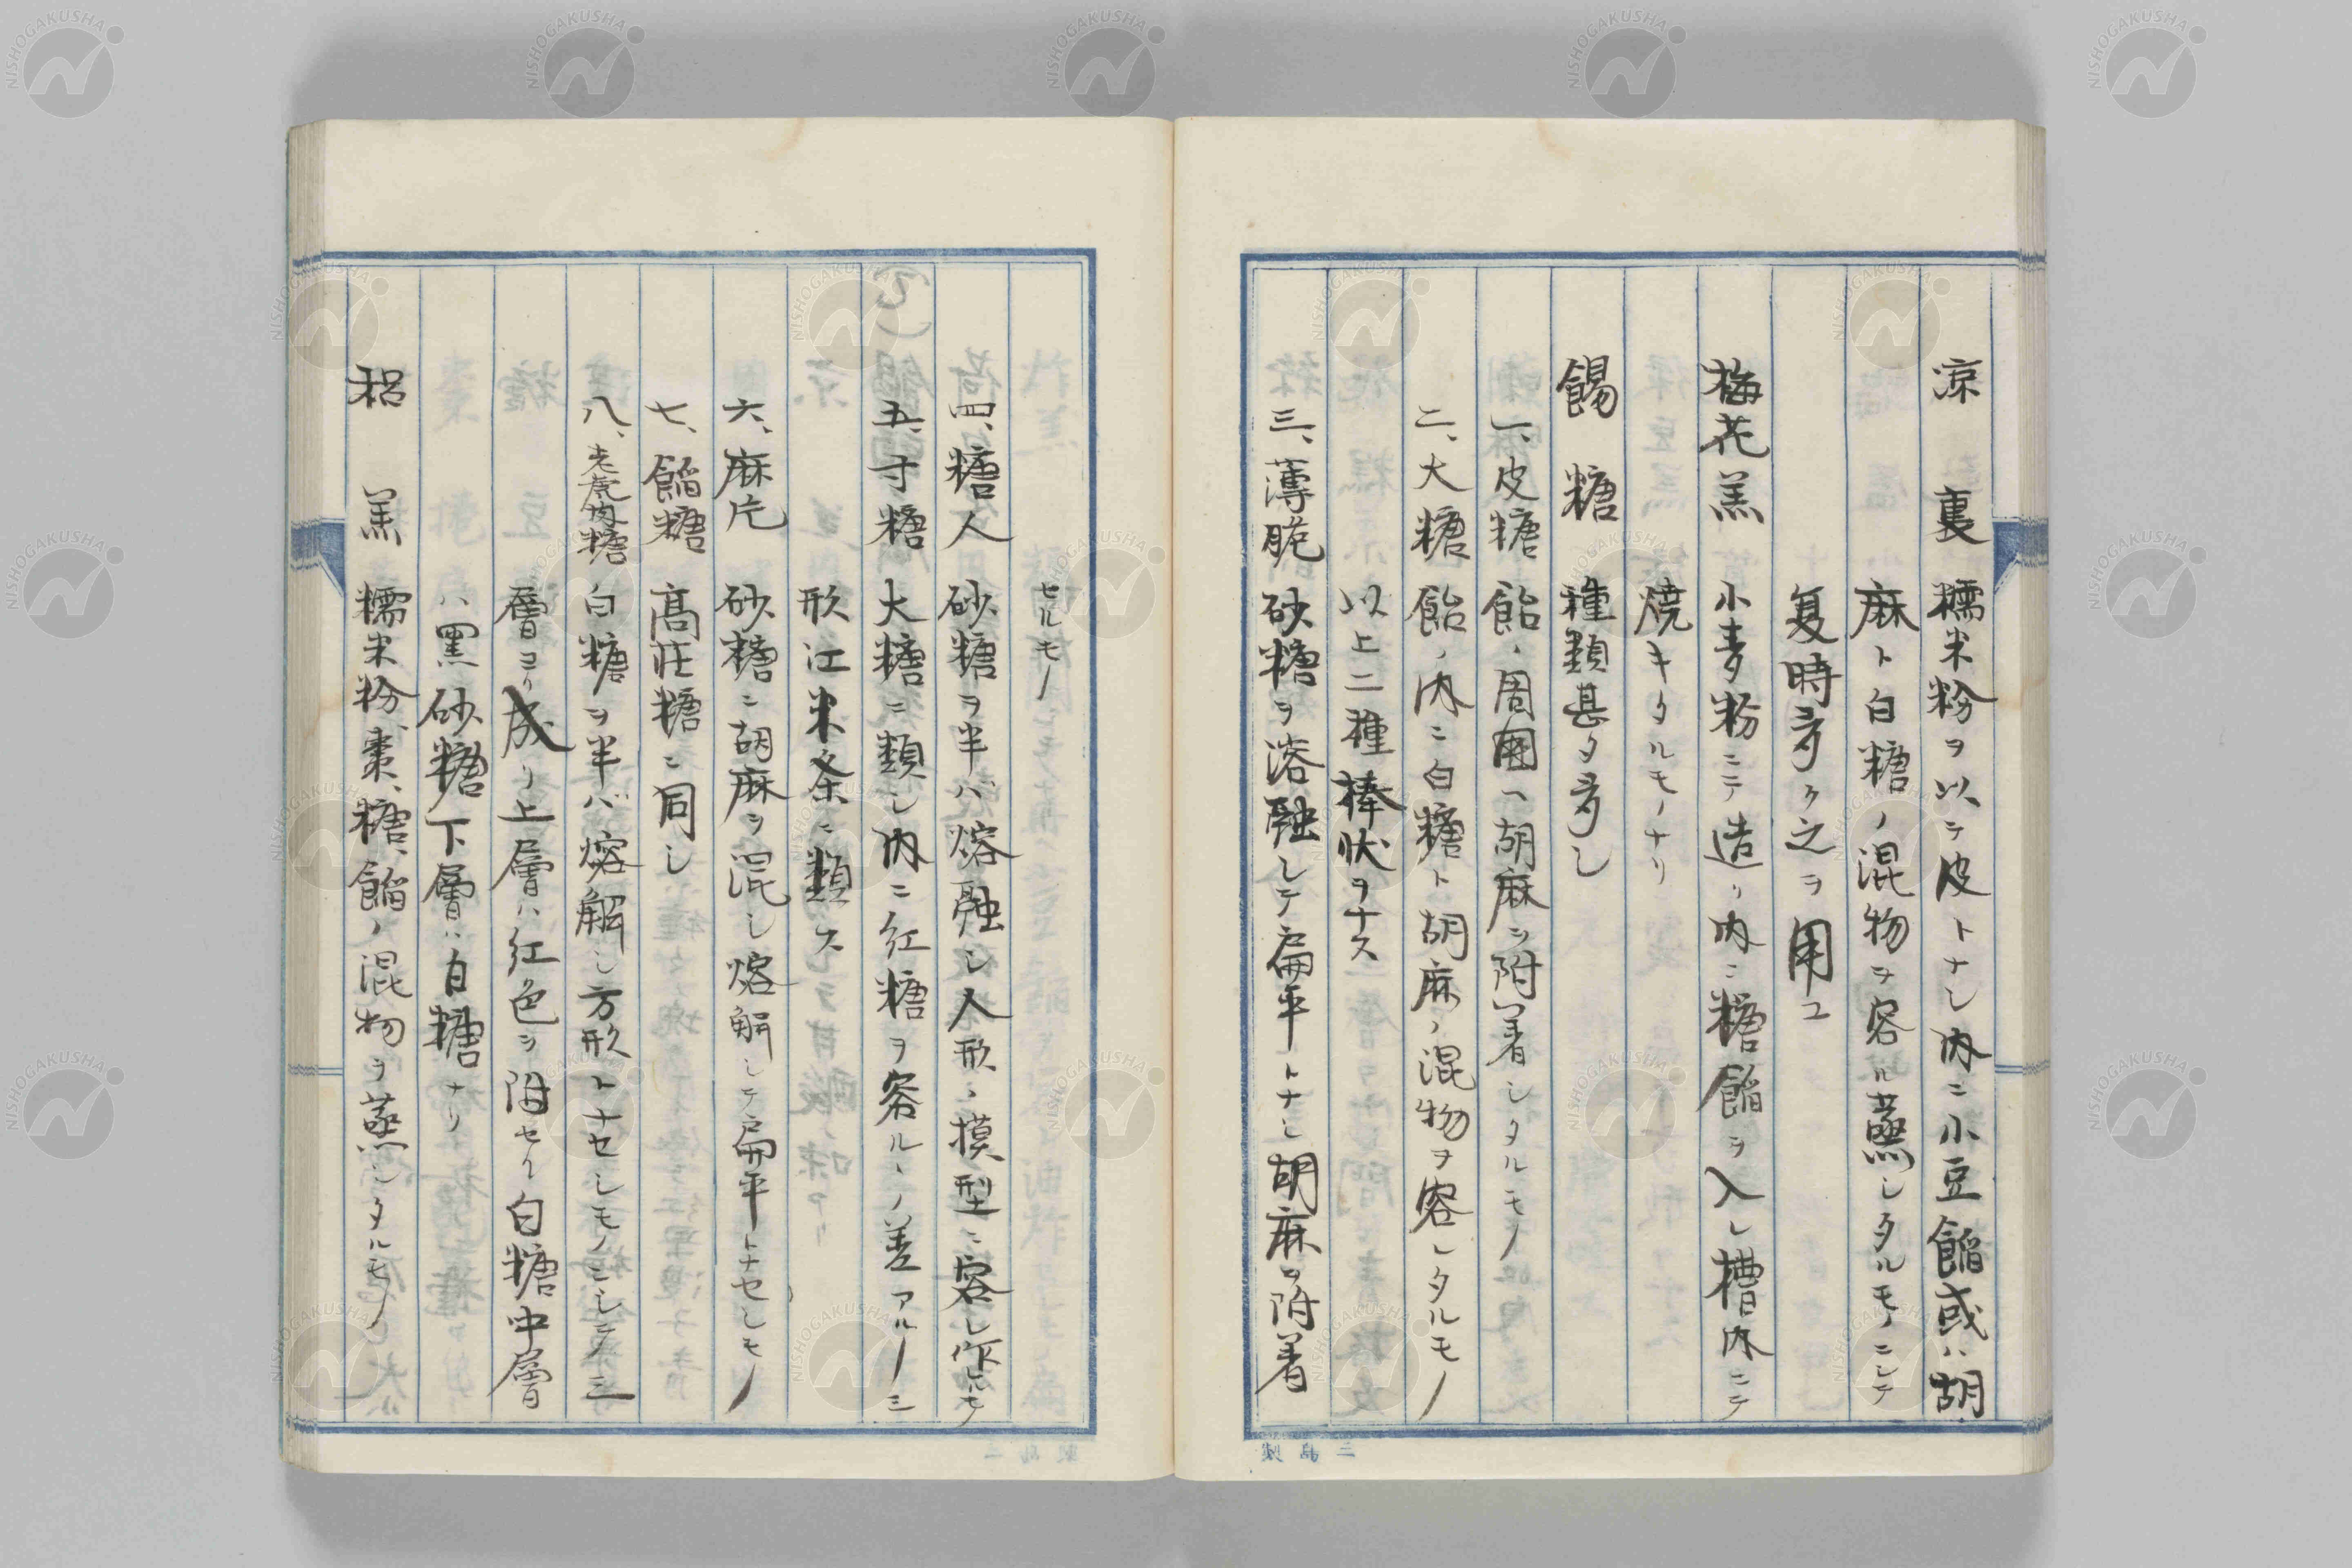 凉裏 糯米粉ヲ以テ皮トナシ内ニ小豆餡或ハ胡
麻ト白糖ノ混物ヲ容レ蒸シタルモノニシテ
夏時多ク之ヲ用ユ
梅花羔 小麦粉ニテ造リ内ニ糖餡ヲ入レ槽内ニテ
焼キタルモノナリ
餳糖 種類甚タ多シ
一、皮糖 飴ノ周囲ヘ胡麻ヲ附着シタルモノ
二、大糖 飴ノ内ニ白糖ト胡麻ノ混物ヲ容レタルモノ
以上二種棒状ヲナス
三、薄脆 砂糖ヲ溶融シテ扁平トナシ胡麻ヲ附着
セルモノ
四、糖人 砂糖ヲ半バ熔融シ人形ノ摸型ニ容レ作ルモノ
五、寸糖 大糖ニ類シ内ニ紅糖ヲ容ルヽノ差アルノミ
形江米条ニ類ス
六、麻片 砂糖ニ胡麻ヲ混シ熔解シテ扁平トナセシモノ
七、餡糖 高荘糖ニ同シ
八、老虎肉糖 白糖ヲ半バ熔解シ方形トナセシモノニシテ三
層ヨリ成リ上層ハ紅色ヲ附セル白糖中層
ハ黒砂糖下層ハ白糖ナリ
梠羔 糯米粉、棗、糖、餡ノ混物ヲ蒸シタルモノ
三島製
NISHOGAKUSHA